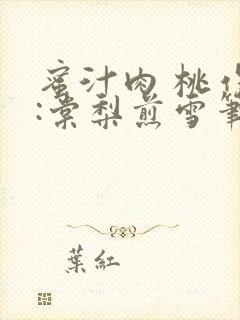 蜜汁肉桃 作
:棠梨煎雪 筆
葉紅